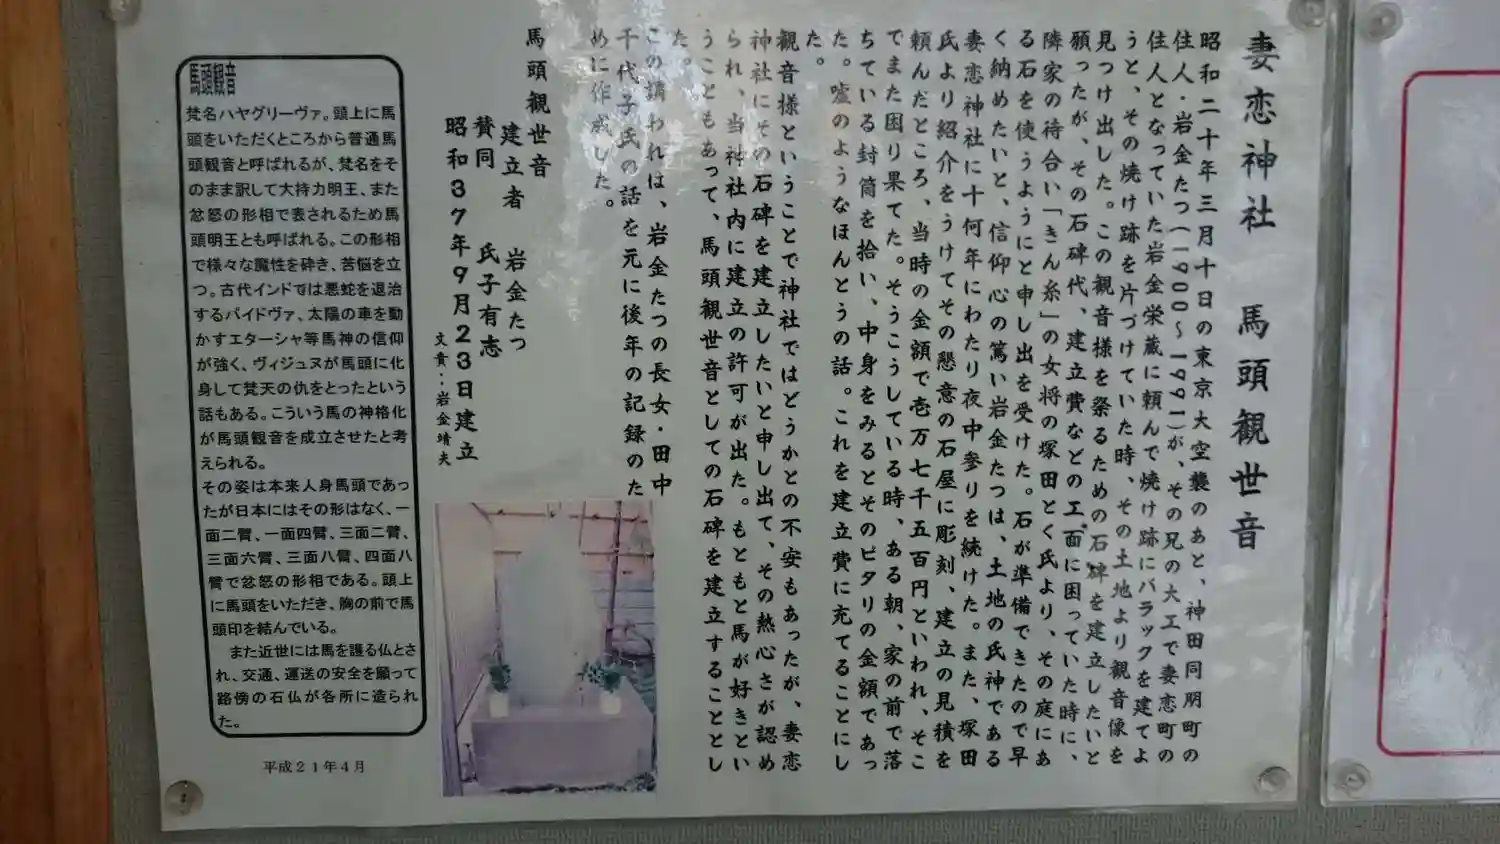 妻恋神社　馬頭観世音
昭和二十年三月十日の東京大空襲のあと、神田同朋町の
住人・岩金たつ(１９００～１９９１)が、その兄の大工で妻恋町の
住人となっていた岩金栄蔵に頼んで焼け跡にバラックを建てよ
うと、その焼け跡を片づけていた時、その土地より観音像を
見つけ出した。この観音様を祭るための石碑を建立したいと
願ったが、その石碑代、建立費などの工面に困っていた時に、
隣家の待合い「きん糸」の女将の塚田とく氏より、その庭にあ
る石を使うようにと申し出を受けた。石が準備できたので早
く納めたいと、信仰心の篤い岩金たつは、土地の氏神である
妻恋神社に十何年にわたり夜中参りを続けた。また、塚田
氏より紹介をうけてその懇意の石屋に彫刻、建立の見積を
頼んだところ、当時の金額で壱万七千五百円といわれ、そこ
でまた困り果てた。そうこうしている時、ある朝、家の前で落
ちている封筒を拾い、中身をみるとそのピタリの金額であっ
た。嘘のようなほんとうの話。これを建立費に充てることにし
た。
観音様ということで神社ではどうかとの不安もあったが、妻恋
神社にその石碑を建立したいと申し出て、その熱心さが認め
られ、当神社内に建立の許可が出た。もともと馬が好きとい
うこともあって、馬頭観世音としての石碑を建立することとし
た。
この謂われは、岩金たつの長女・田中
千代子氏の話を元に後年の記録のた
めに作成した。
馬頭観世音
建立者　岩金たつ
賛同　氏子有志
昭和３７年９月２３日建立
文責：岩金靖夫
馬頭観音
梵名ハヤグリーヴァ。頭上に馬
頭をいただくところから普通馬
頭観音と呼ばれるが、梵名をそ
のまま訳して大持力明王、また
忿怒の形相で表されるため馬
頭明王とも呼ばれる。この形相
で様々な魔性を砕き、苦悩を立
つ。古代インドでは悪蛇を退治
するパイドヴァ、太陽の車を動
かすエターシャ等馬神の信仰
が強く、ヴィジュヌが馬頭に化
身して梵天の仇をとったという
話もある。こういう馬の神格化
が馬頭観音を成立させたと考
えられる。
その姿は本来人身馬頭であっ
たが日本にはその形はなく、一
面二臂、一面四臂、三面二臂、
三面六臂、三面八臂、四面八
臂で忿怒の形相である。頭上
に馬頭をいただき、胸の前で馬
頭印を結んでいる。
　また近世には馬を護る仏とさ
れ、交通、運送の安全を願って
路傍の石仏が各所に造られ
た。
平成２１年４月